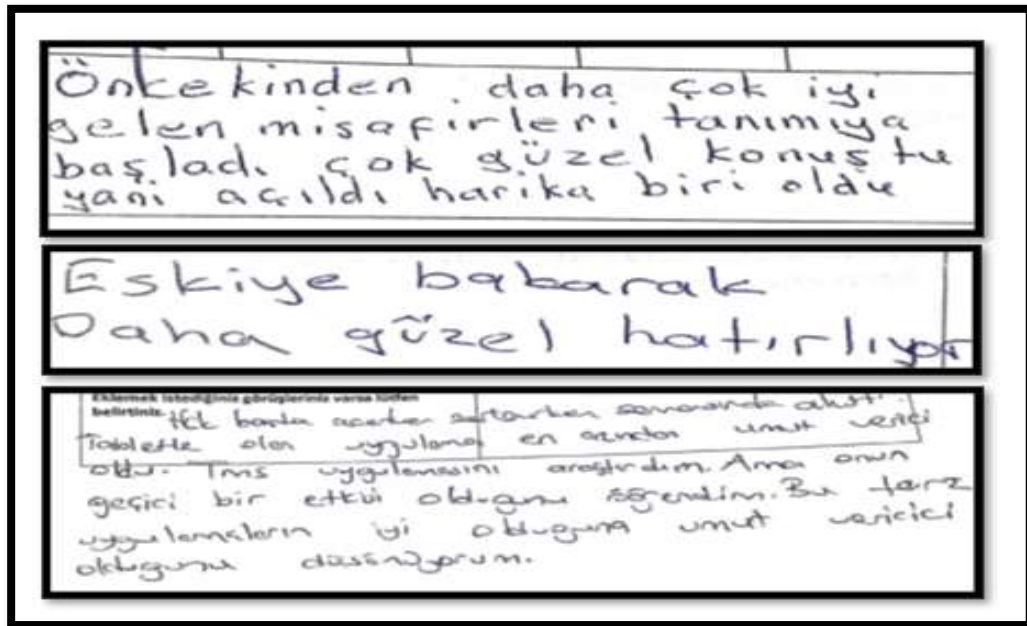 Önkekinden daha çok iyi
gelen misafirleri tanımıya
başladı çok güzel konuştu
yani açıldı harika biri oldu
Eskiye bakarak
Daha güzel hatırlıyor
Eklemek istediğiniz görüşleriniz varsa lütfen
belirtiniz. sonrasında
Tablette olan uygulama en azından umut verici
oldu. Tms uygulamasını araştırdım. Ama onun
geçici bir etkisi olduğunu öğrendim. Bu tarz
uygulamaların iyi olduğuna umut vericici
olduguna düşünüyorum.